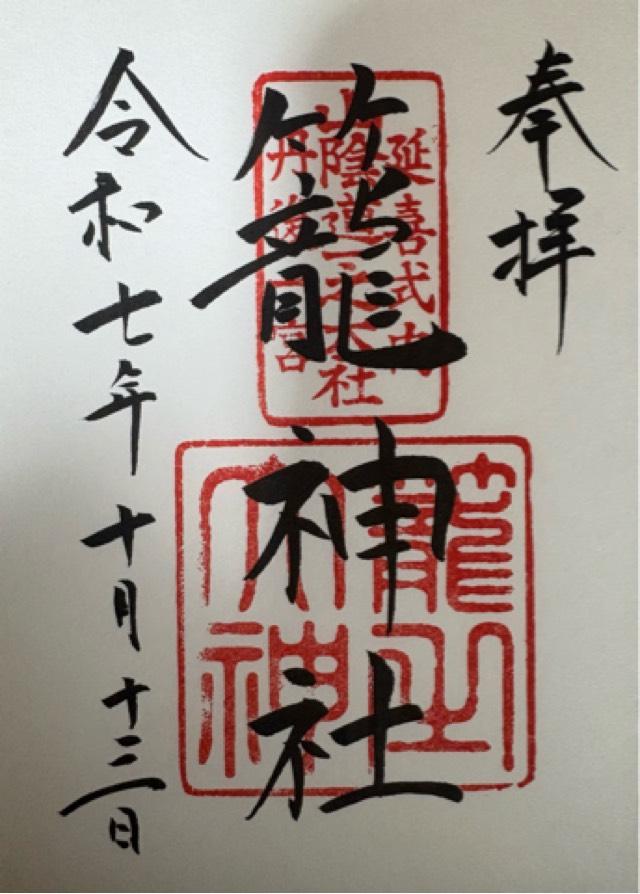 奉拝
延喜式内
山陰道一之大社
丹後一宮
籠神社
籠之
大神
令和七年十月十三日